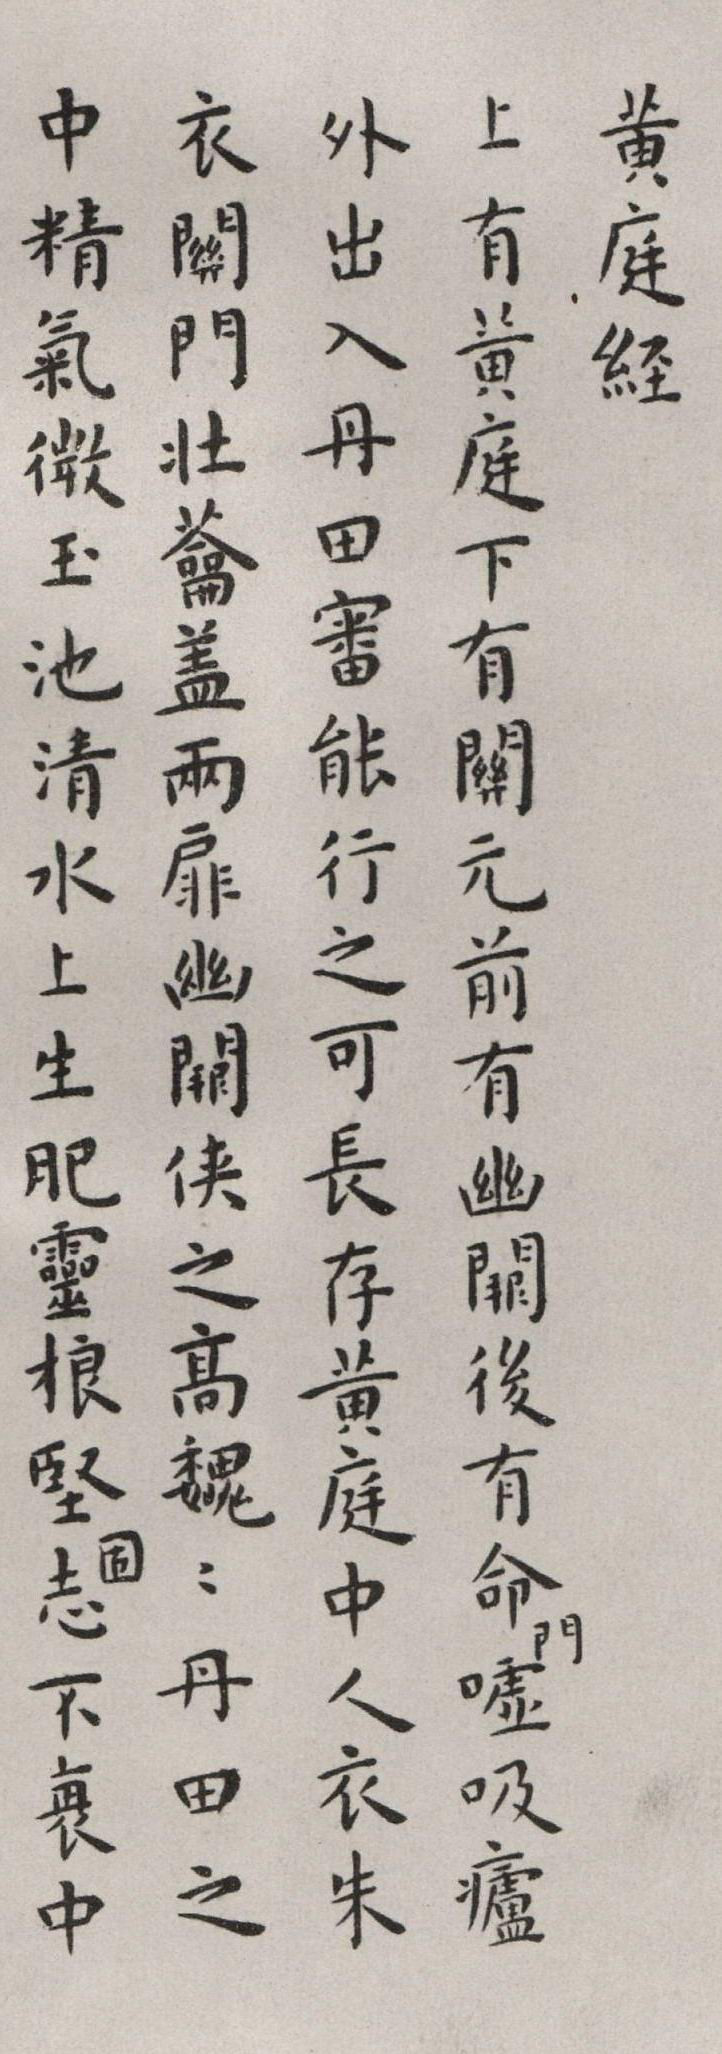 黄庭経
上有黄庭下有關元前有幽闕後有命門噓吸廬
外出入丹田審能行之可長存黄庭中人衣朱
衣關門壯蘥盖兩扉幽闕俠之高魏〻丹田之
中精氣微玉池清水上生肥靈根堅固志不衰中